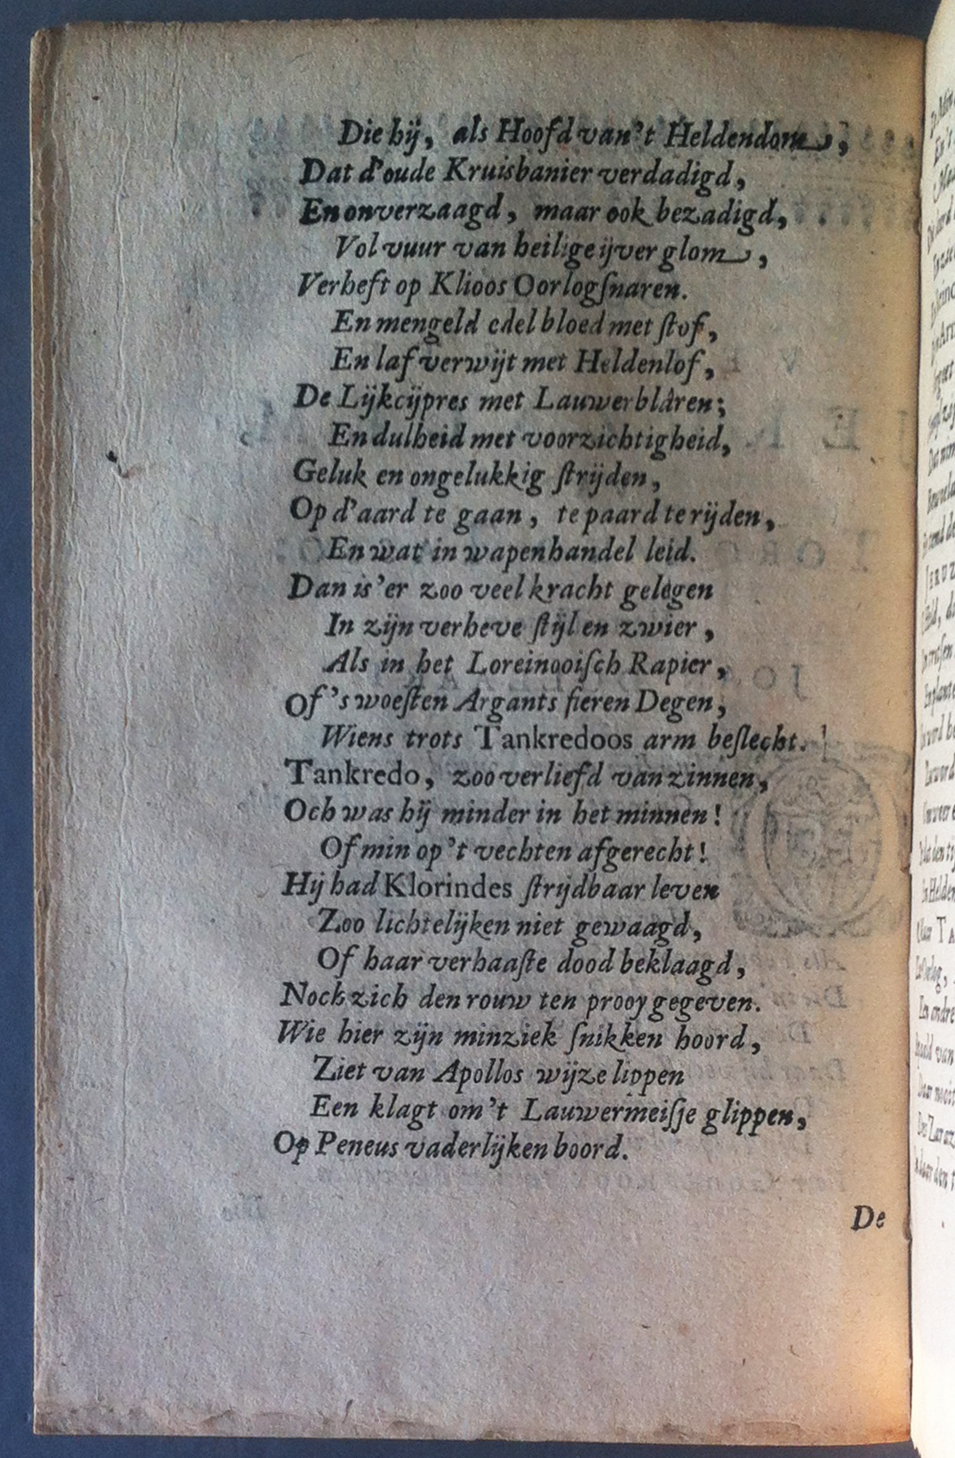 Die hij, als Hoofd van 't Heldendom,
Dat d'oude Kruisbanier verdadigd,
En onverzaagd, maar ook bezadigd,
Vol vuur van heilige ijver glom,
Verheft op Klioos Oorlogſnaren.
En mengeld edel bloed met ſtof,
En laf verwijt met Heldenlof,
De Lijkcijpres met Lauwerbláren;
En dulheid met voorzichtigheid,
Geluk en ongelukkig ſtrijden,
Op d'aard te gaan, te paard te rijden,
En wat in wapenhandel leid.
Dan is 'er zoo veel kracht gelégen
In zijn verheve ſtijl en zwier,
Als in het Loreinooiſch Rapier,
Of 's woeſten Argants fieren Degen,
Wiens trots Tankredoos arm beſlecht.
Tankredo, zoo verliefd van zinnen,
Och was hij minder in het minnen!
Of min op 't vechten afgerecht!
Hij had Klorindes ſtrijdbaar leven
Zoo lichtelijken niet gewaagd,
Of haar verhaaſte dood beklaagd,
Noch zich den rouw ten prooy gegeven.
Wie hier zijn minziek ſnikken hoord,
Ziet van Apollos wijze lippen
Een klagt om 't Lauwermeiſje glippen,
Op Peneus vaderlijken boord.
De